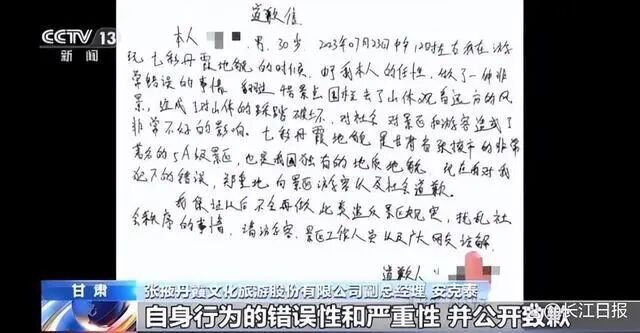 CCTV 13
新闻
道歉信
本人 男,30岁 2023年07月23日中午12时左右我在游
玩七彩丹霞地貌的时候,由于我本人的任性,做了一件非
常错误的事情 翻越 景点围栏去了山体观看远方的风
景,造成了对山体的踩踏破坏,对社会 对景区和游客造成了
非常不好的影响。七彩丹霞地貌是甘肃省张掖市的非常
著名的5A级景区,也是我国独有的地质地貌 现在我对我
犯下的错误,郑重地向景区游客以及社会道歉。
我保证以后不会再做此类违反景区规定,扰乱社
会秩序的事情,请游客、景区工作人员以及广大网友谅解
道歉人
甘肃
张掖丹霞文化旅游股份有限公司副总经理 安克泰
自身行为的错误性和严重性 并公开致歉
@长江日报